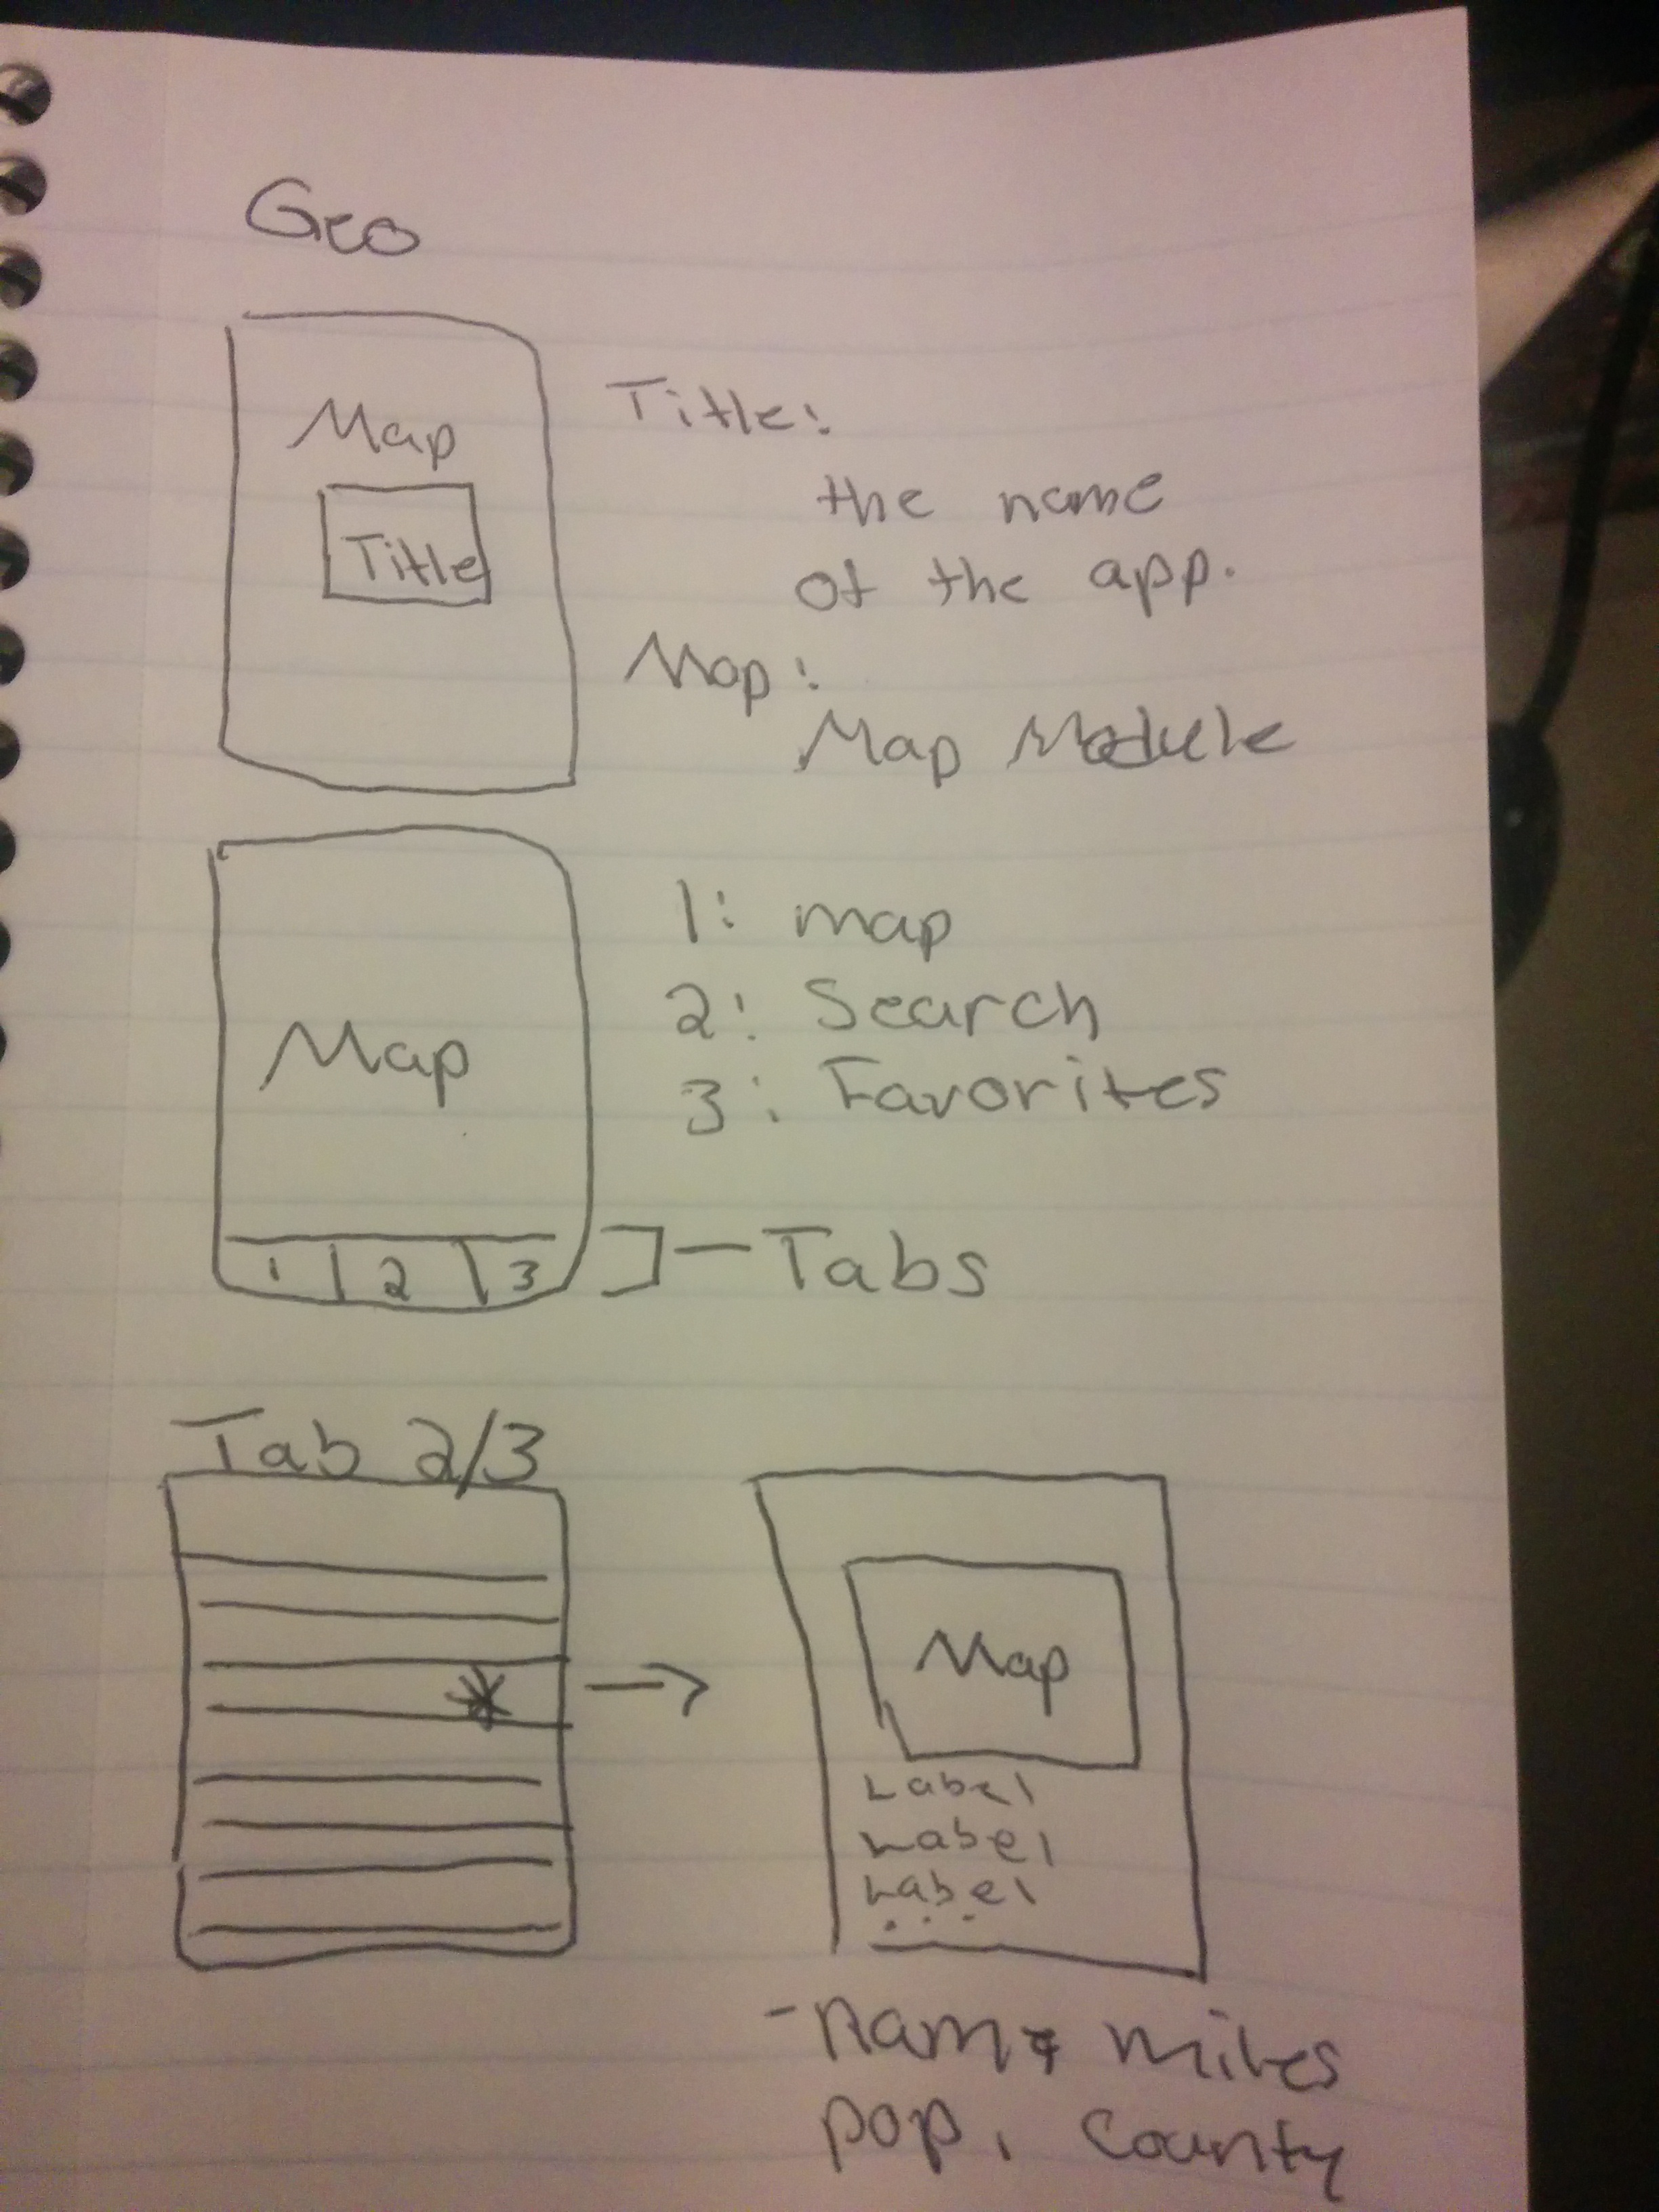 Geo
Map
Title
Title:
the name
of the app.
Map:
Map Module
Map
1: map
2: Search
3: Favorites
1 2 3
Tabs
Tab 2/3
Map
Label
Label
Label
...
- name miles
pop, county